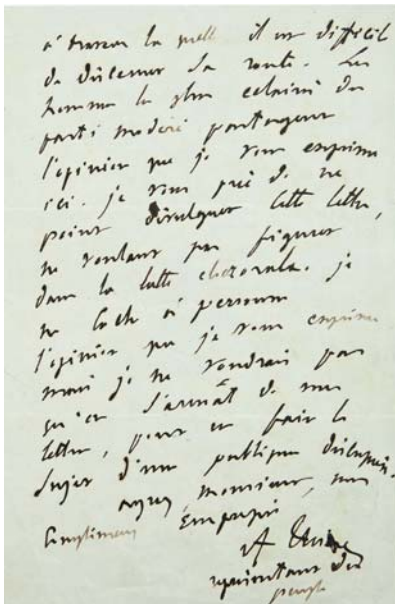 à travers la quelle il est difficil
de discerner la route. Les
hommes les plus eclairés du
parti modéré partagent
l'opinion que je vous exprime
ici. je vous prie de ne
point divulguer cette lettre,
ne voulant pas figurer
dans la lutte électorale. je
ne cache à personne
l'opinion que je vous exprime
mais je ne voudrais pas
qu'on s'armât de ma
lettre, pour en faire le
sujet d'une publique discussion.
agréez, monsieur, mes
compliments empressés
A Thiers
représentant du
peuple